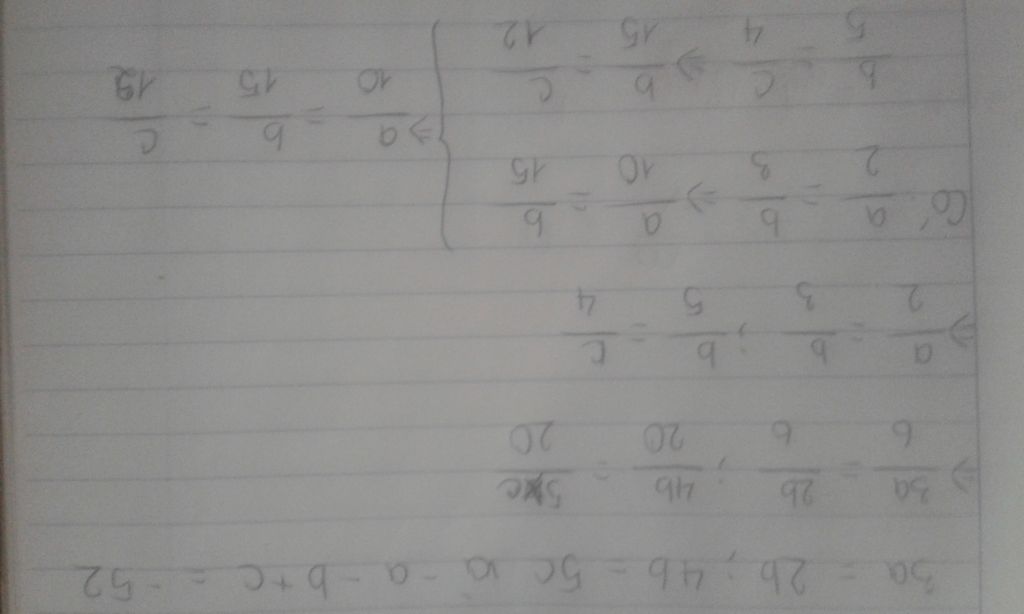 3a = 2b ; 4b = 5c và -a - b + c = -52
⇒ 3a/6 = 2b/6 ; 4b/20 = 5c/20
⇒ a/2 = b/3 ; b/5 = c/4
Có: a/2 = b/3 ⇒ a/10 = b/15
b/5 = c/4 ⇒ b/15 = c/12
⇒ a/10 = b/15 = c/12